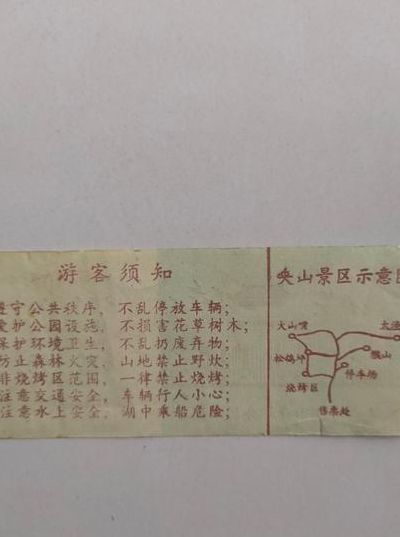 游客须知
遵守公共秩序，不乱停放车辆；
爱护公园设施，不损害花草树木；
保护环境卫生，不乱扔废弃物；
防止森林火灾，山地禁止野炊；
非烧烤区范围，一律禁止烧烤；
注意交通安全，车辆行人小心；
注意水上安全，湖中乘船危险；
示意图
山景区示意
大山
烧烤区
停车场
售票处